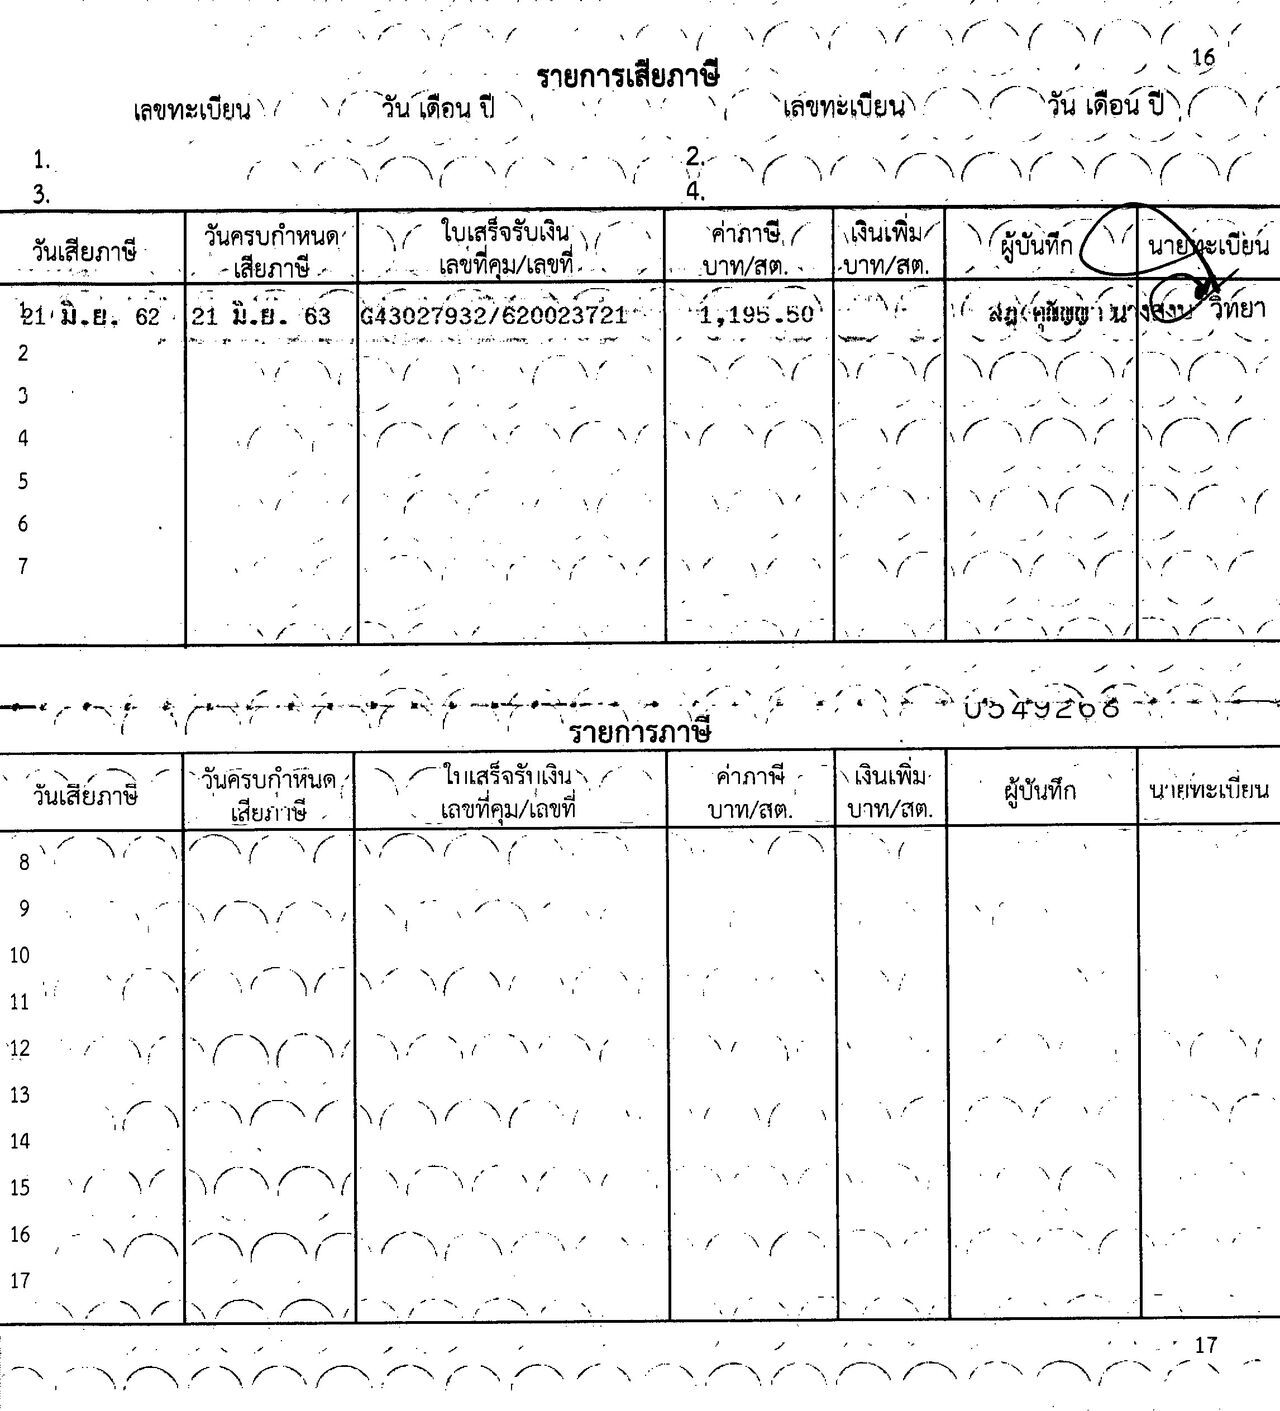 16
รายการเสียภาษี
เลขทะเบียน วัน เดือน ปี เลขทะเบียน วัน เดือน ปี
1. 2.
3. 4.
วันเสียภาษี วันครบกำหนดเสียภาษี ใบเสร็จรับเงิน เลขที่คุม/เลขที่ ค่าภาษี บาท/สต. เงินเพิ่ม บาท/สต. ผู้บันทึก นายทะเบียน
21 มิ.ย. 62 21 มิ.ย. 63 G43027932/620023721 1,195.50 วิทยา
2
3
4
5
6
7
0549268
รายการภาษี
วันเสียภาษี วันครบกำหนดเสียภาษี ใบเสร็จรับเงิน เลขที่คุม/เลขที่ ค่าภาษี บาท/สต. เงินเพิ่ม บาท/สต. ผู้บันทึก นายทะเบียน
8
9
10
11
12
13
14
15
16
17
17